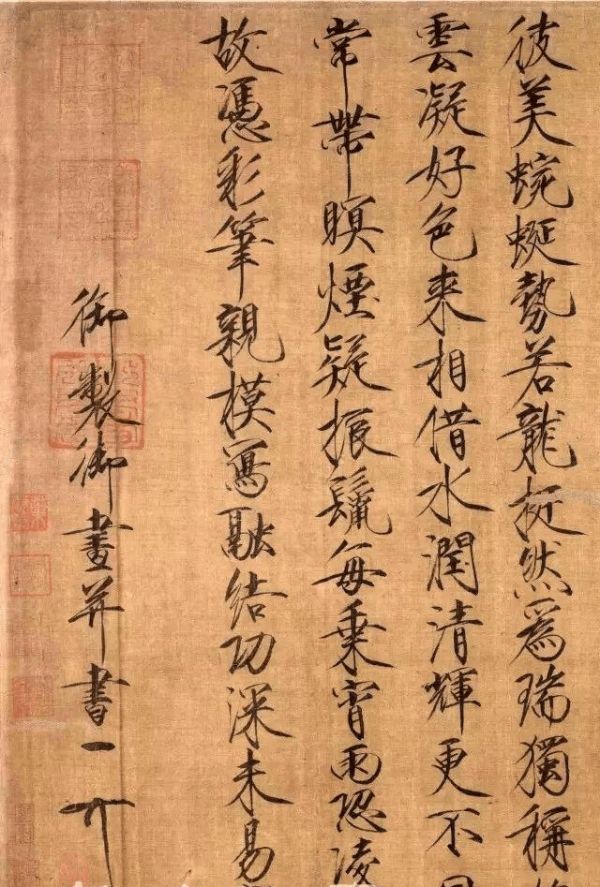 彼美蜿蜒勢若龍挺然爲瑞獨稱
雲凝好色来相借水潤清輝更不
常帶暝煙疑振鬣每乘宵雨恐凌
故憑彩筆親模寫融結功深未易
御製御畫并書